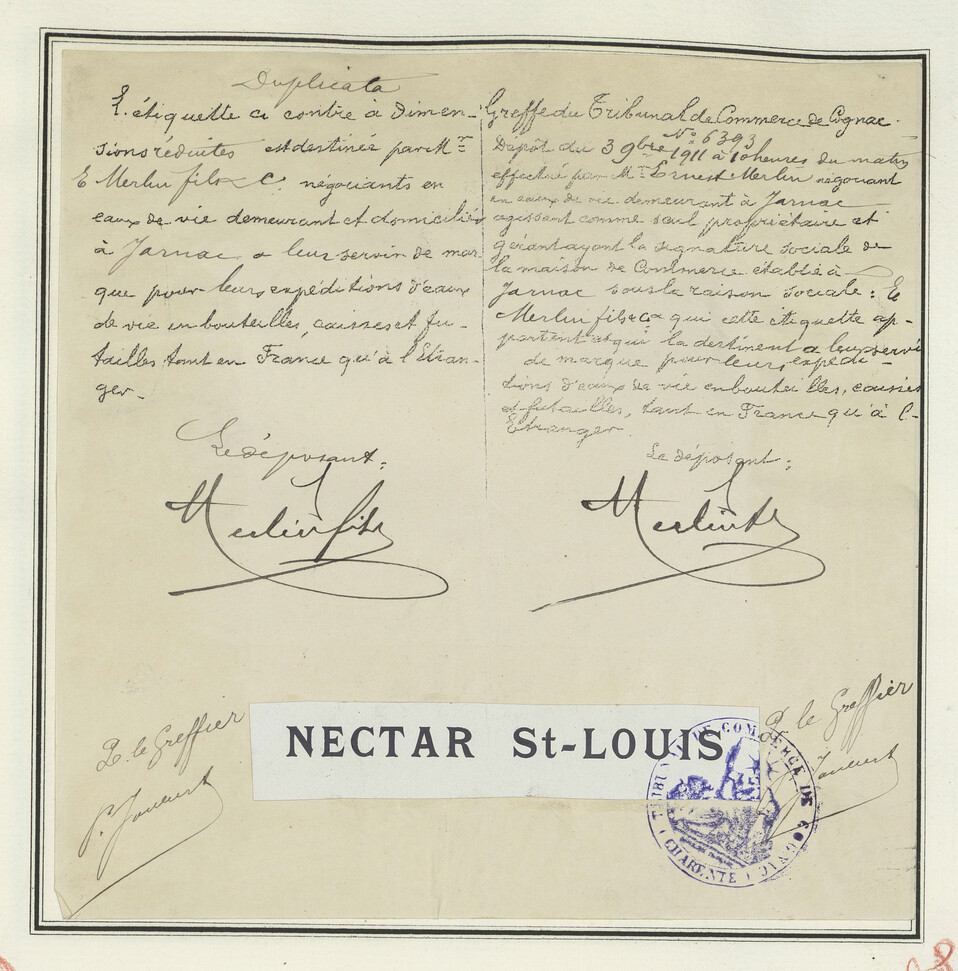 Duplicata
L'étiquette ci contre à dimen-
sions réduites est destinée par Mr
E Merlin fils & Cie négociants en
eaux de vie demeurant et domiciliés
à Jarnac a leur servir de mar-
que pour leurs expéditions d'eaux
de vie en bouteilles, caisses et fu-
tailles, tant en France qu'à l'Etran-
ger.
Le déposant:
Merlin fils
Greffe du Tribunal de Commerce de Cognac.
No 6393
Dépôt du 3 9bre 1911 à 10 heures du matin
effectué par Mr Ernest Merlin négociant
en eaux de vie demeurant à Jarnac
agissant comme seul propriétaire et
gérant ayant la signature sociale de
la maison de Commerce établie à
Jarnac sous la raison sociale: E
Merlin fils & Cie qui cette étiquette ap-
partient et qui la destinent a leur servir
de marque pour leurs expédi-
tions d'eaux de vie en bouteilles, caisses
et futailles, tant en France qu'à l'-
Etranger.
Le déposant:
Merlin fils
P. le Greffier
P. le Greffier
NECTAR St-LOUIS
TRIBUNAL DE COMMERCE DE COGNAC
(CHARENTE)